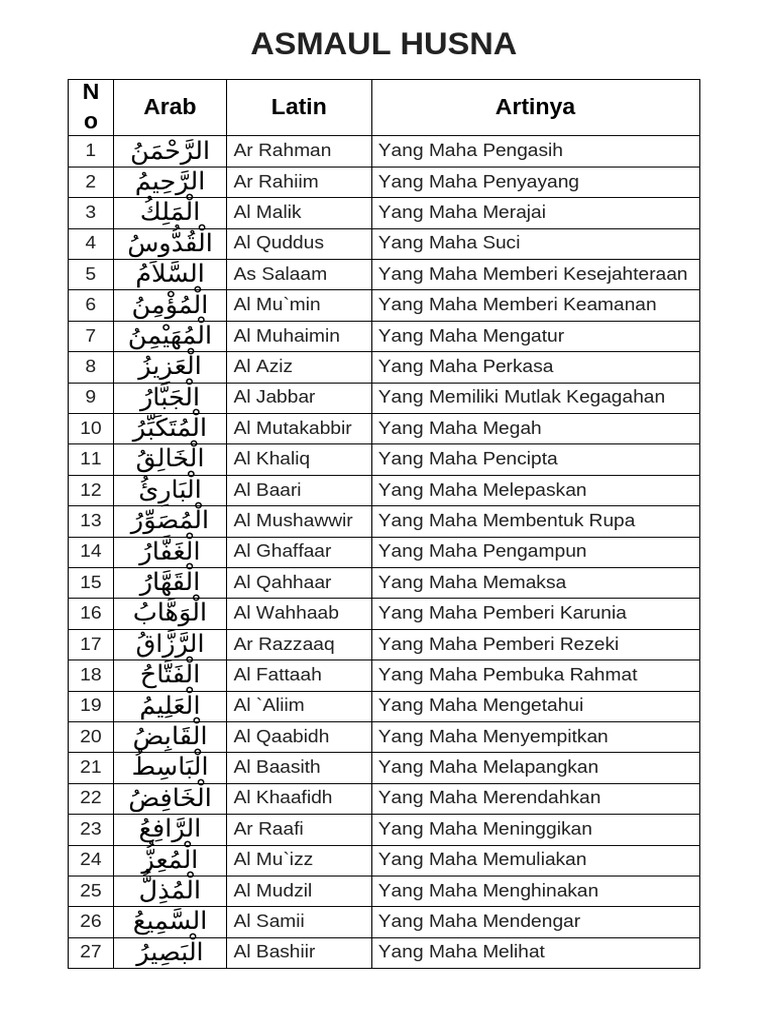 ASMAUL HUSNA
No Arab Latin Artinya
1 الرَّحْمَنُ Ar Rahman Yang Maha Pengasih
2 الرَّحِيمُ Ar Rahiim Yang Maha Penyayang
3 الْمَلِكُ Al Malik Yang Maha Merajai
4 الْقُدُّوسُ Al Quddus Yang Maha Suci
5 السَّلاَمُ As Salaam Yang Maha Memberi Kesejahteraan
6 الْمُؤْمِنُ Al Mu`min Yang Maha Memberi Keamanan
7 الْمُهَيْمِنُ Al Muhaimin Yang Maha Mengatur
8 الْعَزِيزُ Al Aziz Yang Maha Perkasa
9 الْجَبَّارُ Al Jabbar Yang Memiliki Mutlak Kegagahan
10 الْمُتَكَبِّرُ Al Mutakabbir Yang Maha Megah
11 الْخَالِقُ Al Khaliq Yang Maha Pencipta
12 الْبَارِئُ Al Baari Yang Maha Melepaskan
13 الْمُصَوِّرُ Al Mushawwir Yang Maha Membentuk Rupa
14 الْغَفَّارُ Al Ghaffaar Yang Maha Pengampun
15 الْقَهَّارُ Al Qahhaar Yang Maha Memaksa
16 الْوَهَّابُ Al Wahhaab Yang Maha Pemberi Karunia
17 الرَّزَّاقُ Ar Razzaaq Yang Maha Pemberi Rezeki
18 الْفَتَّاحُ Al Fattaah Yang Maha Pembuka Rahmat
19 الْعَلِيمُ Al `Aliim Yang Maha Mengetahui
20 الْقَابِضُ Al Qaabidh Yang Maha Menyempitkan
21 الْبَاسِطُ Al Baasith Yang Maha Melapangkan
22 الْخَافِضُ Al Khaafidh Yang Maha Merendahkan
23 الرَّافِعُ Ar Raafi Yang Maha Meninggikan
24 الْمُعِزُّ Al Mu`izz Yang Maha Memuliakan
25 الْمُذِلُّ Al Mudzil Yang Maha Menghinakan
26 السَّمِيعُ Al Samii Yang Maha Mendengar
27 الْبَصِيرُ Al Bashiir Yang Maha Melihat